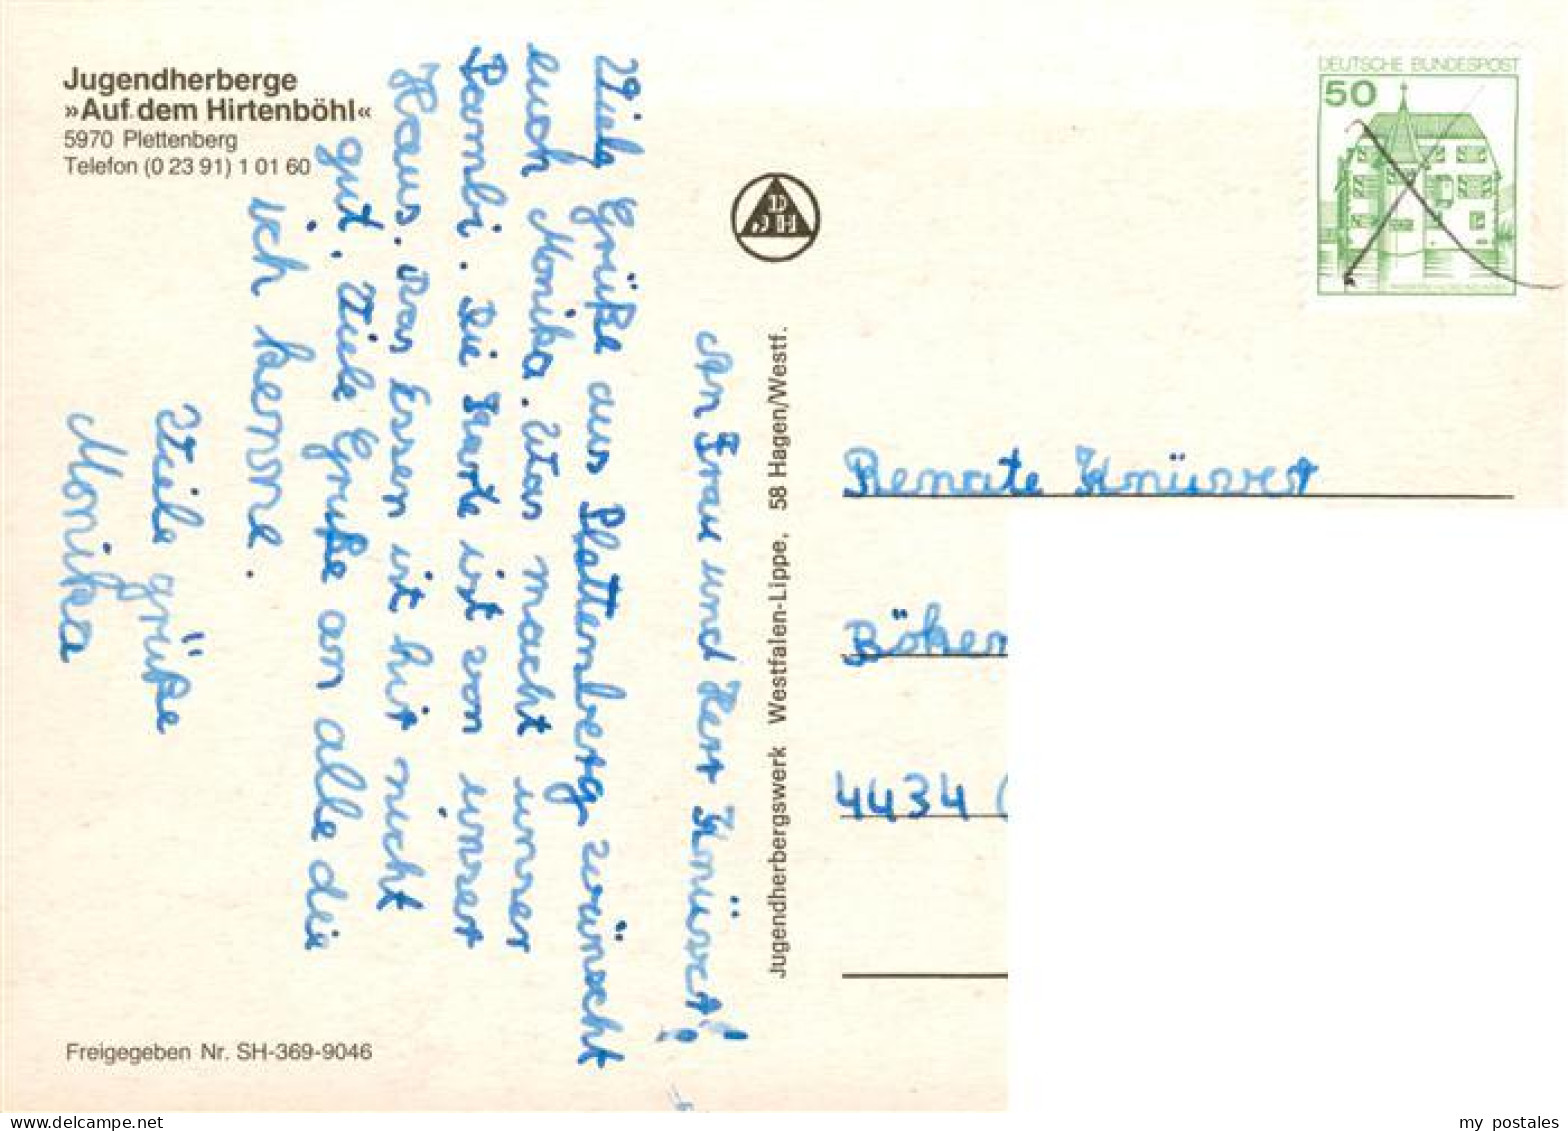 Jugendherberge
»Auf dem Hirtenböhl«
5970 Plettenberg
Telefon (0 23 91) 1 01 60
An Frau und Herr Knüvert!
Viele Grüße aus Plettenberg wünscht
euch Monika. Was macht unser
Bambi. Die Karte ist von unsert
Haus. Das Essen ist hir nicht
gut. Viele Gruße an alle die
ich kenne.
Viele grüße
Monika
Freigegeben Nr. SH-369-9046
Jugendherbergswerk Westfalen-Lippe, 58 Hagen/Westf.
DJH
DEUTSCHE BUNDESPOST
50
Renate Knüvert
Böker
4434
my postales